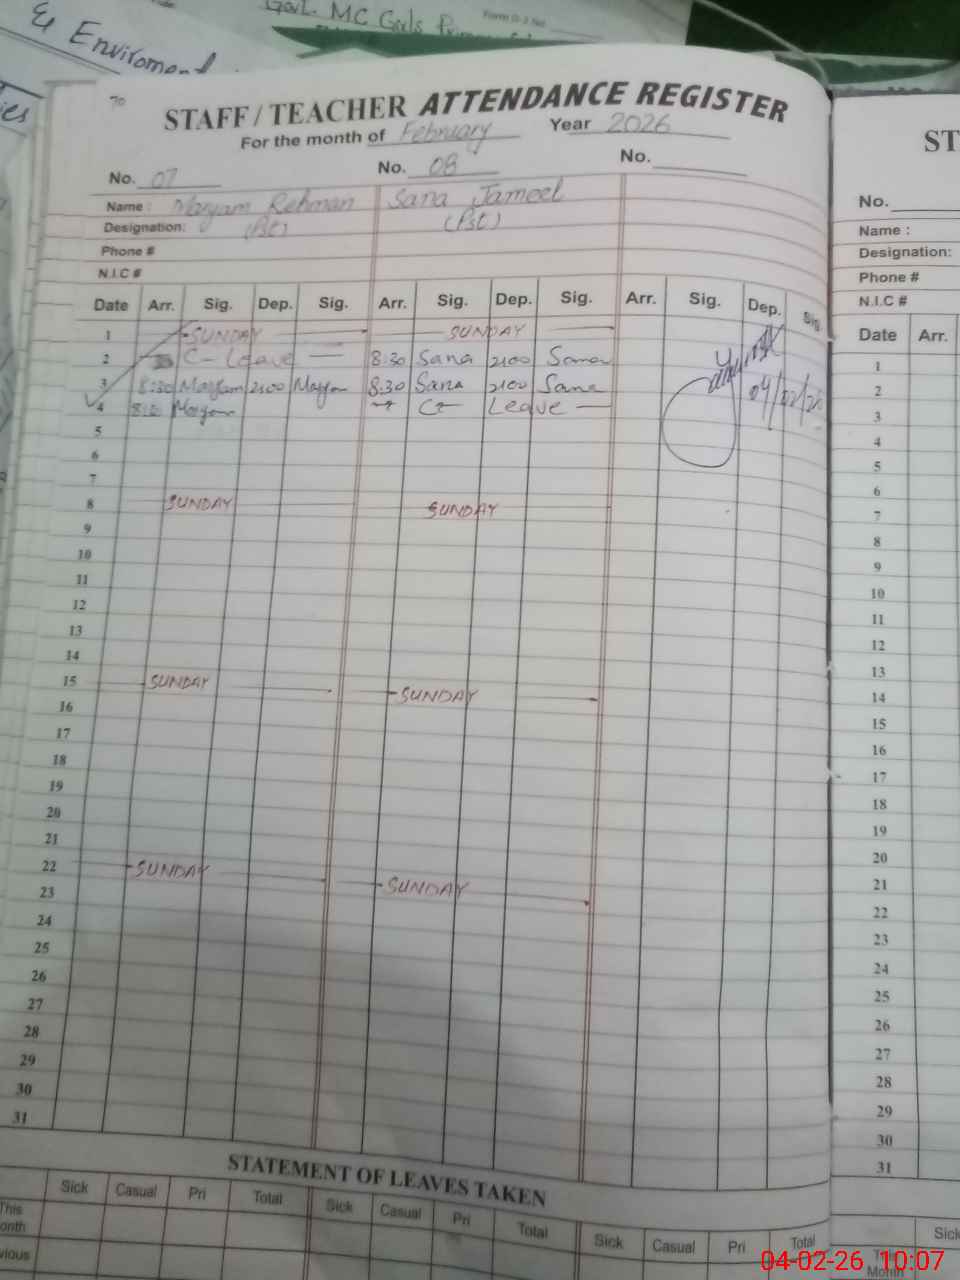 & Enviroment
Govt. MC Girls
ies
70
STAFF / TEACHER ATTENDANCE REGISTER
For the month of February Year 2026
No. 07 No. 08 No.
Name : Maryam Rehman Sana Jameel
Designation: (Pst) (Pst)
Phone #
N.I.C #
Date Arr. Sig. Dep. Sig. Arr. Sig. Dep. Sig. Arr. Sig. Dep. Sig.
1 SUNDAY SUNDAY
2 C- Leave 8:30 Sana 2:00 Sana
3 8:30 Maryam 2:00 Maryam 8:30 Sana 2:00 Sana 04/02/26
4 Maryam C Leave
5
6
7
8 SUNDAY SUNDAY
9
10
11
12
13
14
15 SUNDAY SUNDAY
16
17
18
19
20
21
22 SUNDAY SUNDAY
23
24
25
26
27
28
29
30
31
STATEMENT OF LEAVES TAKEN
Sick Casual Pri Total Sick Casual Pri Total Sick Casual Pri Total
This
onth
vious
ST
No.
Name :
Designation:
Phone #
N.I.C #
Date Arr.
1
2
3
4
5
6
7
8
9
10
11
12
13
14
15
16
17
18
19
20
21
22
23
24
25
26
27
28
29
30
31
Sick
This
Month
04-02-26 10:07